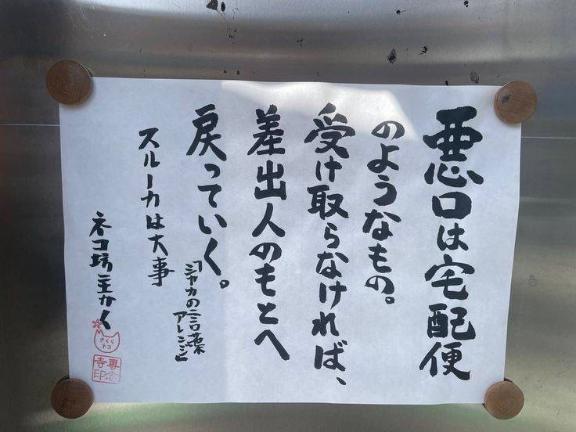 悪口は宅配便
のようなもの。
受け取らなければ、
差出人のもとへ
戻っていく。
「シャカの言葉
アレンジ」
スルー力は大事
ネコ坊主かく